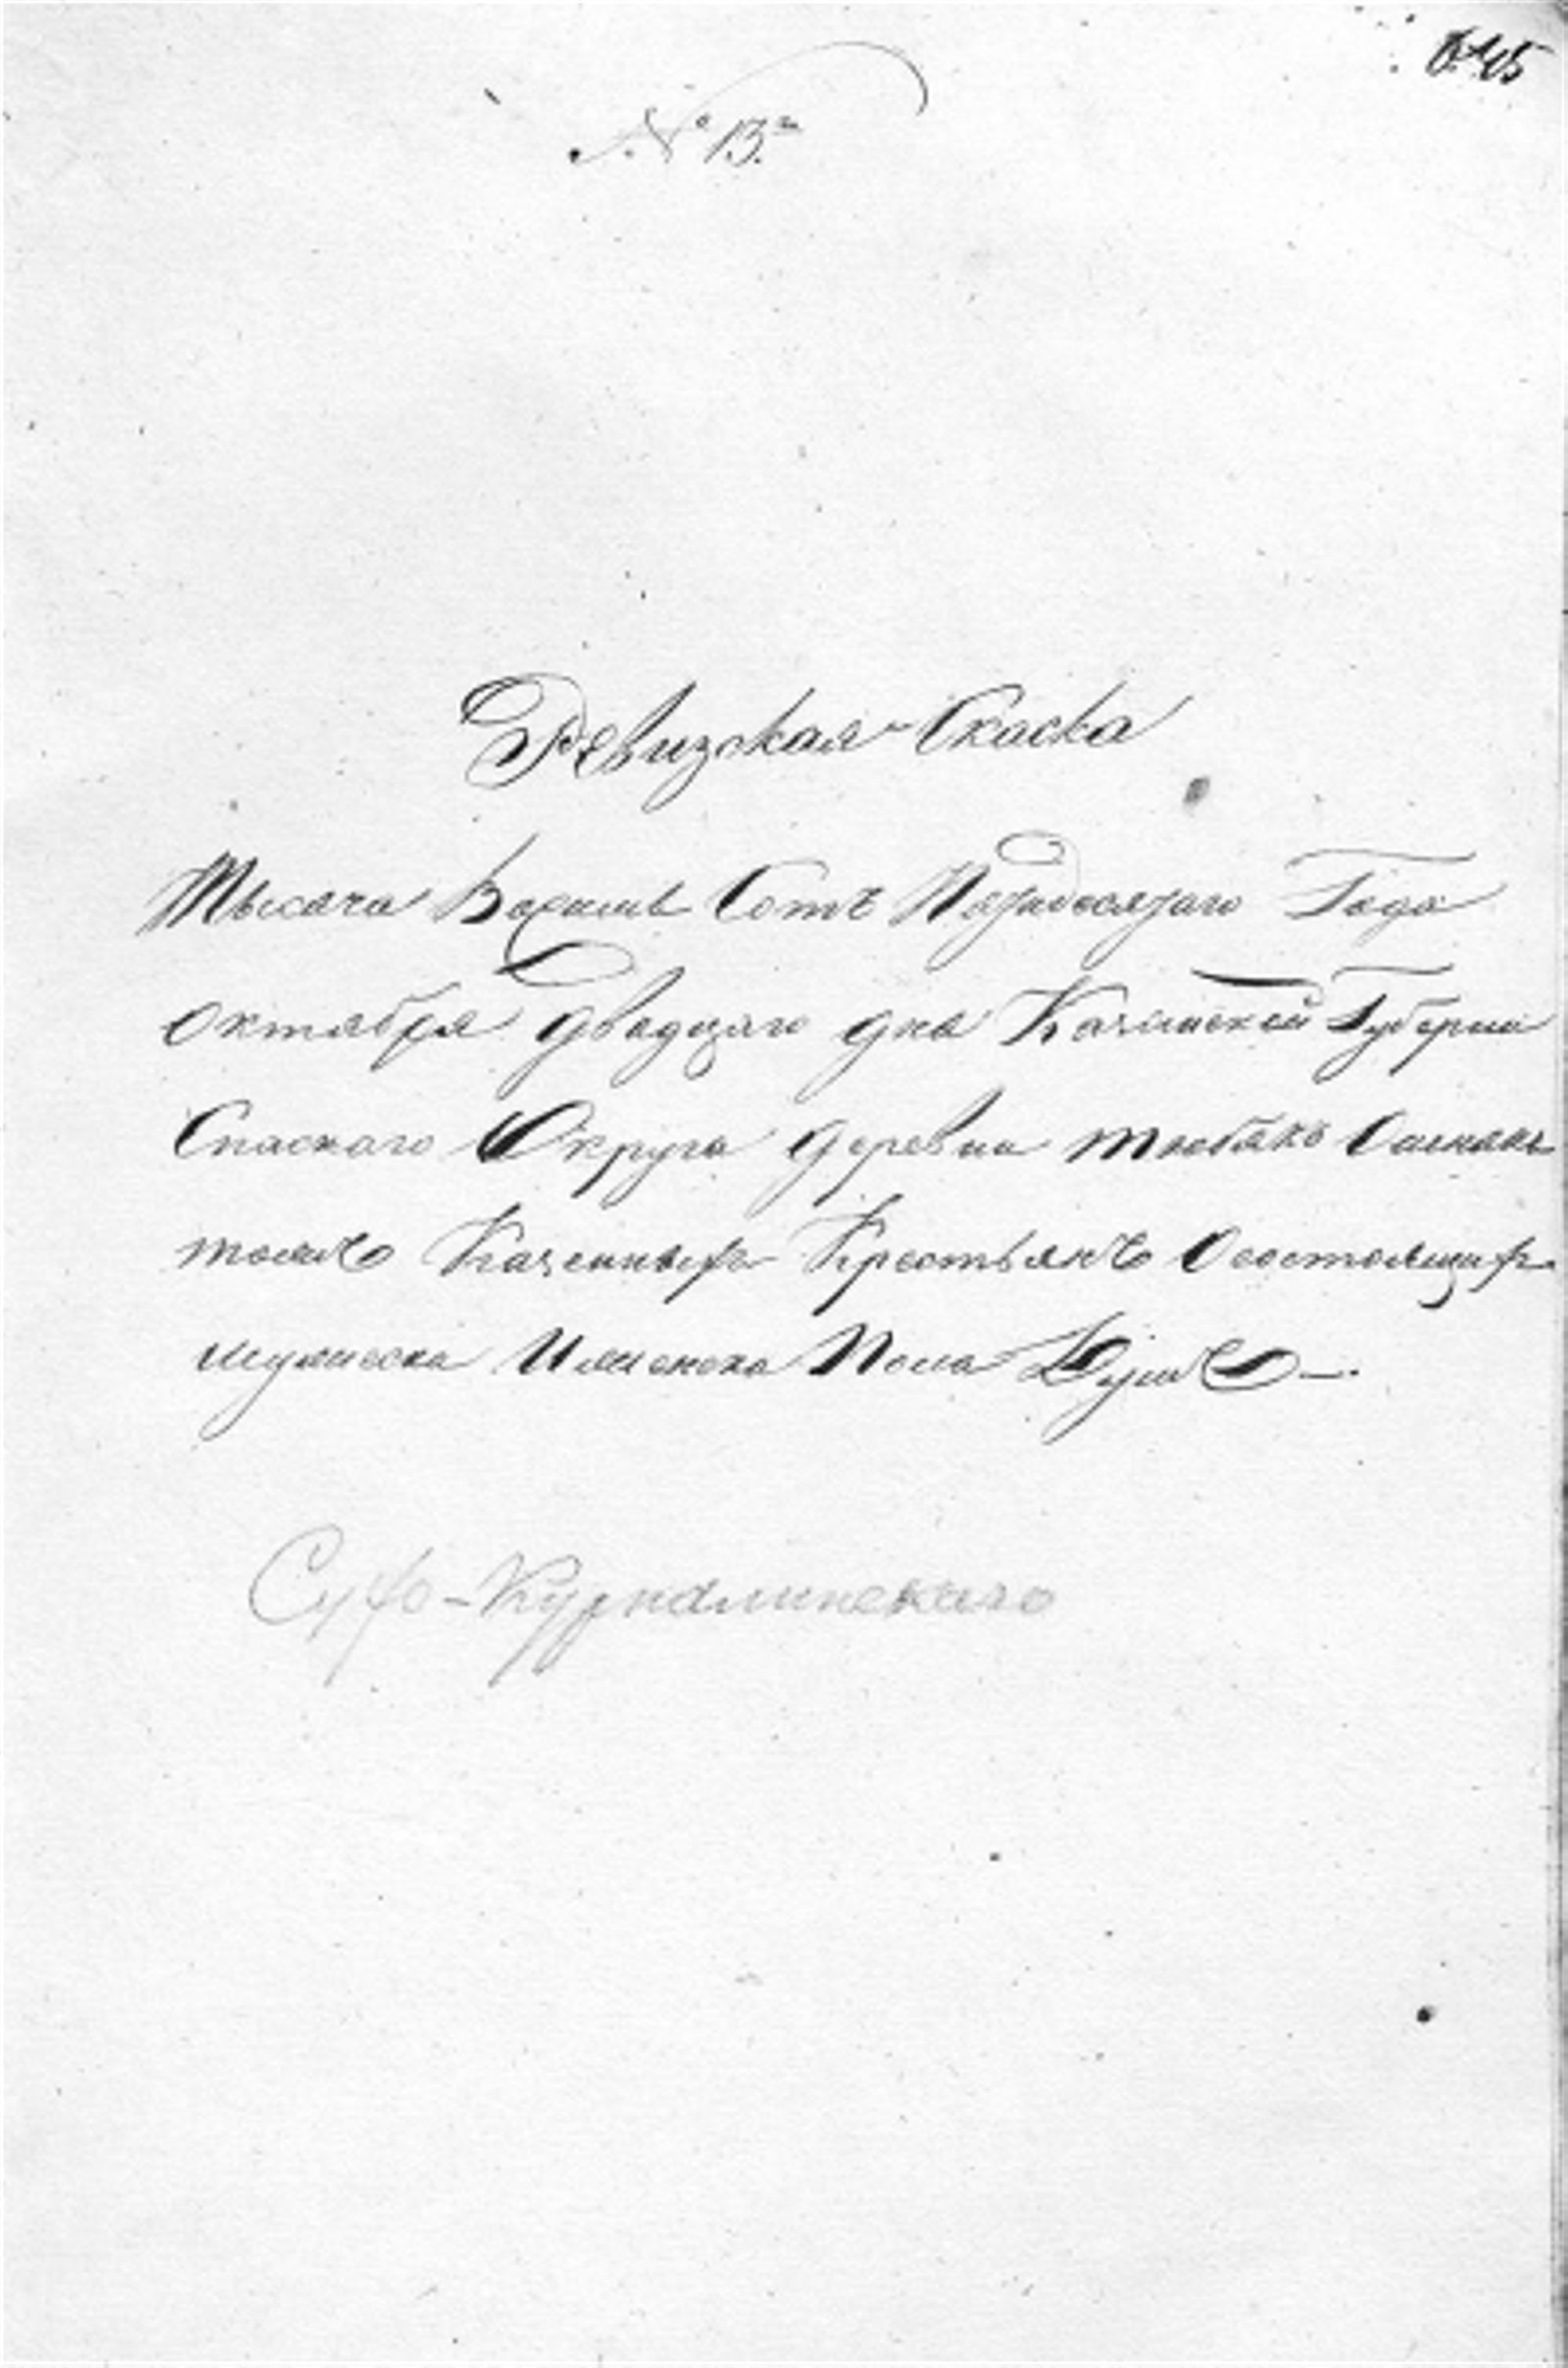 № 13й
Ревизская Скаска
Тысяча Восемь Сотъ Пятидесятаго Года
Октября двадцатаго дня Казанской Губернии
Спаскаго Округа деревни Тюбякъ
Казенныхъ Крестьянъ Осостоящихъ
мужеска Иженска Пола Душъ
Курналинскаго